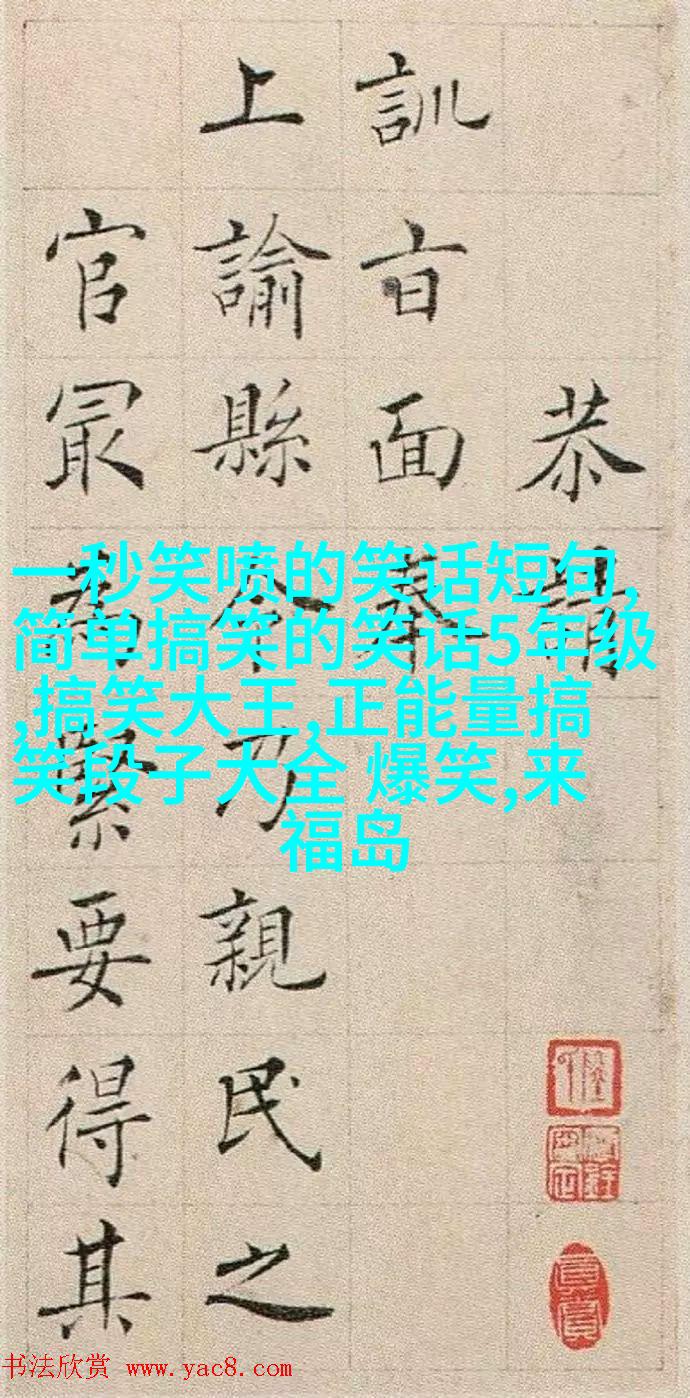 恭請
訓旨面奉
上諭縣令乃親民之
官最為緊要得其
一秒笑喷的笑话短句,
简单搞笑的笑话5年级
,搞笑大王,正能量搞
笑段子大全 爆笑,来
福岛
书法欣赏 www.yac8.com